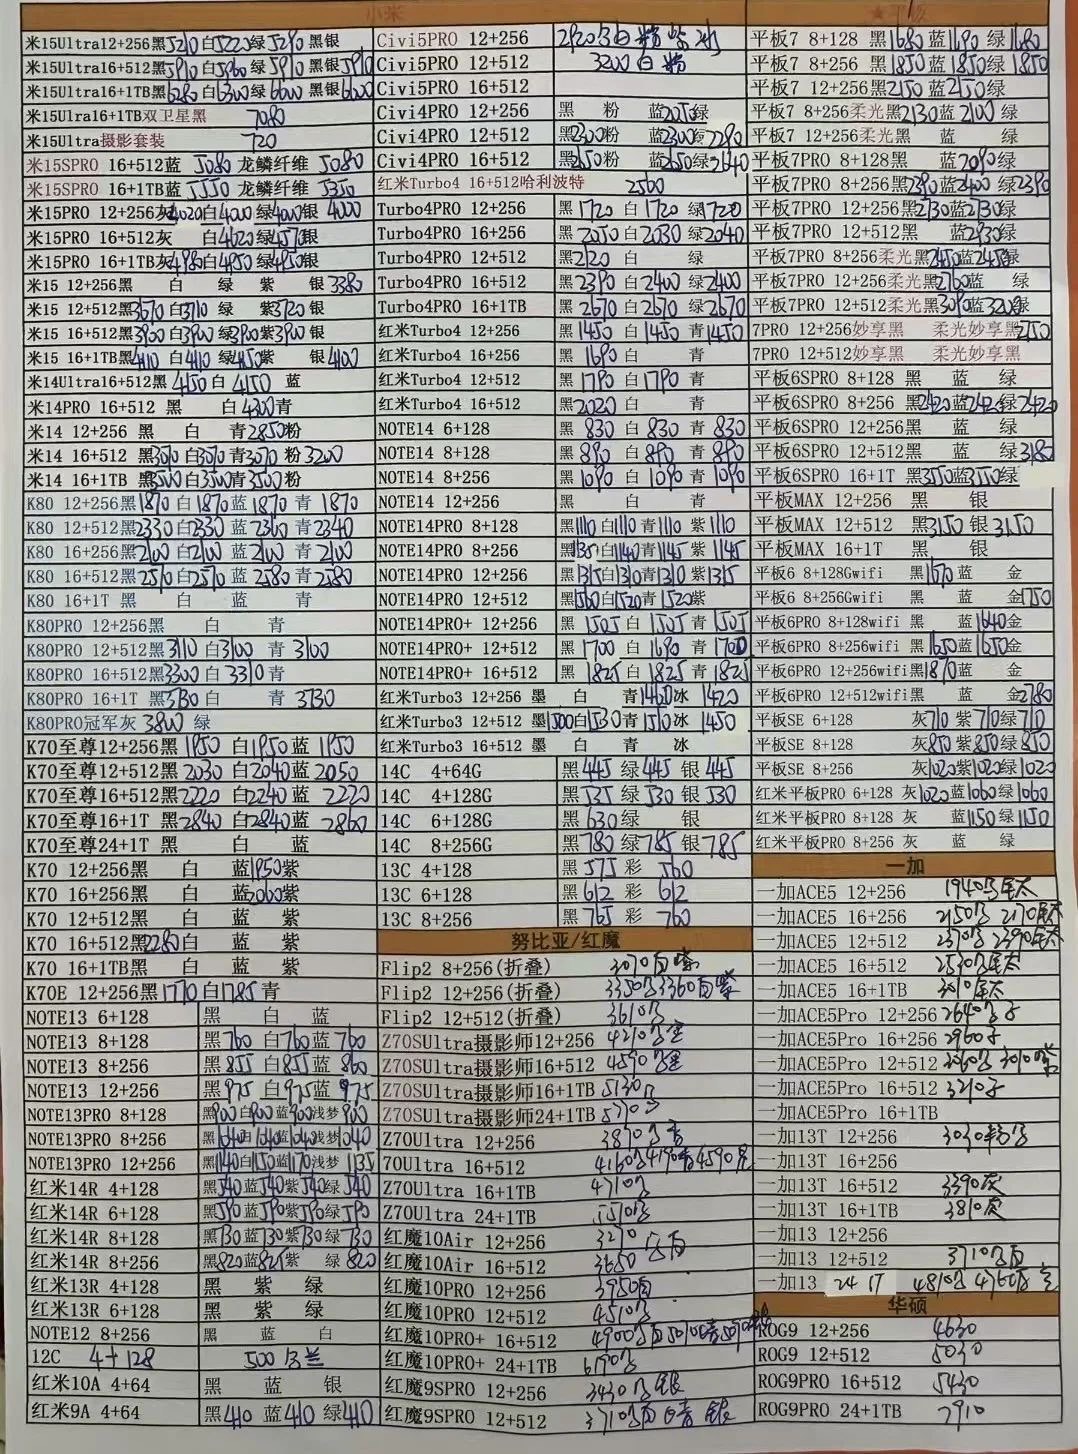 小米
米15Ultra12+256黑5210白5220绿5290 黑银
米15Ultra16+512黑5910白5960绿5910黑银5910
米15Ultra16+1TB黑6280白6300绿6600 黑银6600
米15Ulra16+1TB双卫星黑 7080
米15Ultra摄影套装 720
米15SPRO 16+512蓝 5080 龙鳞纤维 5080
米15SPRO 16+1TB蓝 5550 龙鳞纤维 5350
米15PRO 12+256灰4020白4000 绿4000银 4000
米15PRO 16+512灰 白4620绿4570银
米15PRO 16+1TB灰4980白4950 绿4950银
米15 12+256黑 白 绿 紫 银3380
米15 12+512黑3670 白3710 绿 紫3720银
米15 16+512黑3900白3900 绿3900紫3900银
米15 16+1TB黑4110 白4110 绿4150紫 银4100
米14Ultra16+512黑 4150白 4150 蓝
米14PRO 16+512 黑 白4300青
米14 12+256 黑 白 青2850粉
米14 16+512 黑3070 白3070 青3070 粉3200
米14 16+1TB 黑3500白3500青3500粉
K80 12+256黑1870 白1870蓝1870 青 1870
K80 12+512黑2330白2330 蓝2360青2340
K80 16+256黑2100白2100 蓝2100青2100
K80 16+512黑2570白2570 蓝2580青2580
K80 16+1T 黑 白 蓝 青
K80PRO 12+256黑 白 青
K80PRO 12+512黑3110 白3100 青 3100
K80PRO 16+512黑3300 白 3310青
K80PRO 16+1T 黑3730 白 青 3730
K80PRO冠军灰 3800 绿
K70至尊12+256黑 1950 白1950蓝 1950
K70至尊12+512黑 2030 白2040蓝2050
K70至尊16+512黑2220 白2240蓝 2220
K70至尊16+1T 黑2840 白2840蓝 2860
K70至尊24+1T 黑 白 蓝
K70 12+256黑 白 蓝1950紫
K70 16+256黑 白 蓝2060紫
K70 12+512黑 白 蓝 紫
K70 16+512黑2280白 蓝 紫
K70 16+1TB黑 白 蓝 紫
K70E 12+256黑1770白1785青
NOTE13 6+128 黑 白 蓝
NOTE13 8+128 黑760 白760蓝760
NOTE13 8+256 黑855 白855蓝 860
NOTE13 12+256 黑975 白975蓝 975
NOTE13PRO 8+128 黑900白900蓝900浅梦900
NOTE13PRO 8+256 黑1040白1040蓝1040浅梦1040
NOTE13PRO 12+256 黑1140白1150蓝1170浅梦 1135
红米14R 4+128 黑540蓝540紫540绿540
红米14R 6+128 黑590蓝590紫590绿590
红米14R 8+128 黑730蓝730紫730绿730
红米14R 8+256 黑820蓝825紫 绿 820
红米13R 4+128 黑 紫 绿
红米13R 6+128 黑 紫 绿
NOTE12 8+256 黑 蓝 白
12C 4+128 500
红米10A 4+64 黑 蓝 银
红米9A 4+64 黑410 蓝410 绿410
Civi5PRO 12+256
Civi5PRO 12+512 3200白 粉
Civi5PRO 16+512
Civi4PRO 12+256 黑 粉 蓝2050绿
Civi4PRO 12+512 黑2300粉 蓝2300绿2290
Civi4PRO 16+512 黑2650粉 蓝2650绿2640
红米Turbo4 16+512哈利波特 2560
Turbo4PRO 12+256 黑 1720 白 1720 绿1720
Turbo4PRO 16+256 黑 2050 白2030 绿2040
Turbo4PRO 12+512 黑2120 白 绿
Turbo4PRO 16+512 黑2390 白2400 绿2400
Turbo4PRO 16+1TB 黑2670 白2670 绿2670
红米Turbo4 12+256 黑1450 白1450 青1450
红米Turbo4 16+256 黑1690白 青
红米Turbo4 12+512 黑1790 白1790 青
红米Turbo4 16+512 黑2020白 青
NOTE14 6+128 黑 830 白 830 青 830
NOTE14 8+128 黑 890 白 890 青 890
NOTE14 8+256 黑 1090 白 1090 青 1090
NOTE14 12+256 黑 白 青
NOTE14PRO 8+128 黑1110白1110青1110 紫1110
NOTE14PRO 8+256 黑1135白1140青1145 紫1145
NOTE14PRO 12+256 黑1315白1310青1310 紫1315
NOTE14PRO 12+512 黑1560白1520青1520紫
NOTE14PRO+ 12+256 黑 1505白 1505 青1505
NOTE14PRO+ 12+512 黑 1700 白1690 青1700
NOTE14PRO+ 16+512 黑 1825 白1825 青1825
红米Turbo3 12+256 墨 白 青1460冰 1420
红米Turbo3 12+512 墨1500白1530青1510冰 1450
红米Turbo3 16+512 墨 白 青 冰
14C 4+64G 黑 445 绿445 银 445
14C 4+128G 黑535 绿530 银 530
14C 6+128G 黑 630绿 银
14C 8+256G 黑780 绿785 银785
13C 4+128 黑 575 彩 560
13C 6+128 黑 612 彩 612
13C 8+256 黑 765 彩 760
努比亚/红魔
Flip2 8+256(折叠)
Flip2 12+256(折叠)
Flip2 12+512(折叠)
Z70SUltra摄影师12+256
Z70SUltra摄影师16+512
Z70SUltra摄影师16+1TB
Z70SUltra摄影师24+1TB
Z70Ultra 12+256
70Ultra 16+512
Z70Ultra 16+1TB
Z70Ultra 24+1TB
红魔10Air 12+256 3270
红魔10Air 16+512 3650
红魔10PRO 12+256 3950白
红魔10PRO 12+512
红魔10PRO+ 16+512
红魔10PRO+ 24+1TB
红魔9SPRO 12+256
红魔9SPRO 12+512
★平板
平板7 8+128 黑1680蓝1690 绿1680
平板7 8+256 黑1850蓝1850绿1850
平板7 12+256黑2150 蓝2150绿
平板7 8+256柔光黑2130蓝2100 绿
平板7 12+256柔光黑 蓝 绿
平板7PRO 8+128黑 蓝2090绿
平板7PRO 8+256黑2390蓝2400 绿2390
平板7PRO 12+256黑2730蓝2730绿
平板7PRO 12+512黑 蓝2930绿
平板7PRO 8+256柔光黑2450蓝2450绿
平板7PRO 12+256柔光黑2760蓝 绿
平板7PRO 12+512柔光黑3090蓝3200绿
7PRO 12+256妙享黑 柔光妙享黑2750
7PRO 12+512妙享黑 柔光妙享黑
平板6SPRO 8+128 黑 蓝 绿
平板6SPRO 8+256 黑2420蓝2420绿2420
平板6SPRO 12+256黑 蓝 绿
平板6SPRO 12+512黑 蓝 绿3180
平板6SPRO 16+1T 黑3550蓝3550绿
平板MAX 12+256 黑 银
平板MAX 12+512 黑3150 银3150
平板MAX 16+1T 黑 银
平板6 8+128Gwifi 黑1670 蓝 金
平板6 8+256Gwifi 黑 蓝 金1750
平板6PRO 8+128wifi 黑 蓝1640金
平板6PRO 8+256wifi 黑1650蓝1650金
平板6PRO 12+256wifi黑1870蓝 金
平板6PRO 12+512wifi黑 蓝 金2780
平板SE 6+128 灰710 紫710绿710
平板SE 8+128 灰850紫850绿850
平板SE 8+256 灰1020紫1020绿1020
红米平板PRO 6+128 灰1020蓝1060绿1060
红米平板PRO 8+128 灰 蓝1150绿1150
红米平板PRO 8+256 灰 蓝 绿
一加
一加ACE5 12+256
一加ACE5 16+256
一加ACE5 12+512
一加ACE5 16+512
一加ACE5 16+1TB
一加ACE5Pro 12+256
一加ACE5Pro 16+256
一加ACE5Pro 12+512
一加ACE5Pro 16+512
一加ACE5Pro 16+1TB
一加13T 12+256
一加13T 16+256
一加13T 16+512 3390灰
一加13T 16+1TB 3810灰
一加13 12+256
一加13 12+512
一加13 24 1T
华硕
ROG9 12+256 4630
ROG9 12+512 5030
ROG9PRO 16+512 5430
ROG9PRO 24+1TB 7910